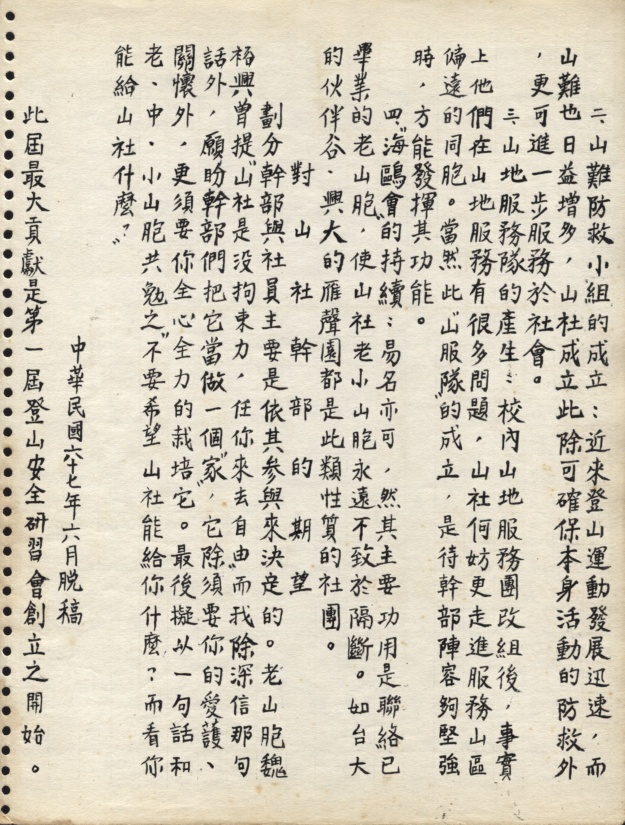 二、山難防救小組的成立：近來登山運動發展迅速，而
山難也日益增多，山社成立此除可確保本身活動的防救外
，更可進一步服務於社會。
三、山地服務隊的產生：校內山地服務團改組後，事實
上他們在山地服務有很多問題，山社何妨更走進服務山區
偏遠的同胞。當然此"山服隊"的成立，是待幹部陣容夠堅強
時，方能發揮其功能。
四、"海鷗會"的持續：易名亦可，然其主要功用是聯絡已
畢業的老山胞，使山社老小山胞永遠不致於隔斷。如台大
的伙伴谷、興大的雁聲園都是此類性質的社團。
對山社幹部的期望
劃分幹部與社員主要是依其參與來決定的。老山胞魏
裕興曾提"山社是没拘束力，任你來去自由"而我除深信那句
話外，願盼幹部們把它當做一個"家"，它除須要你的愛護、
關懷外，更須要你全心全力的栽培它。最後擬以一句話和
老、中、小山胞共勉之"不要希望山社能給你什麼？而看你
能給山社什麼？"
中華民國六十七年六月脱稿
此屆最大貢獻是第一屆登山安全研習會創立之開始。